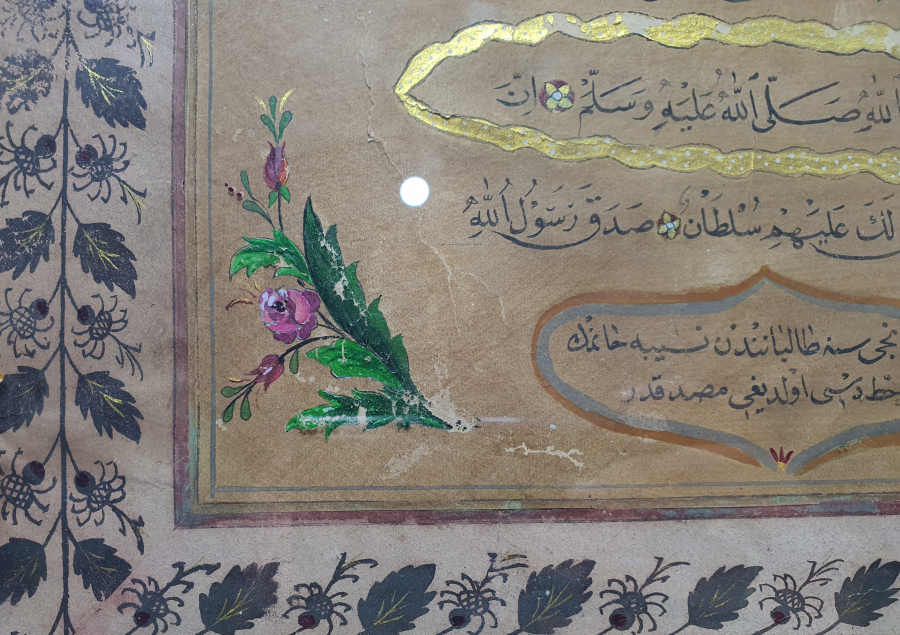 الله صَلَّى اللهُ عَلَيْهِ وَسَلَّمْ اِنَّ
لَكَ عَلَيْهِمْ سُلْطَانْ صَدَقَ رَسَوُلُ اللهِ
نجى سنه طالباتندن نسيبه خانمك
خط رسمى اولديغى مصدقدر